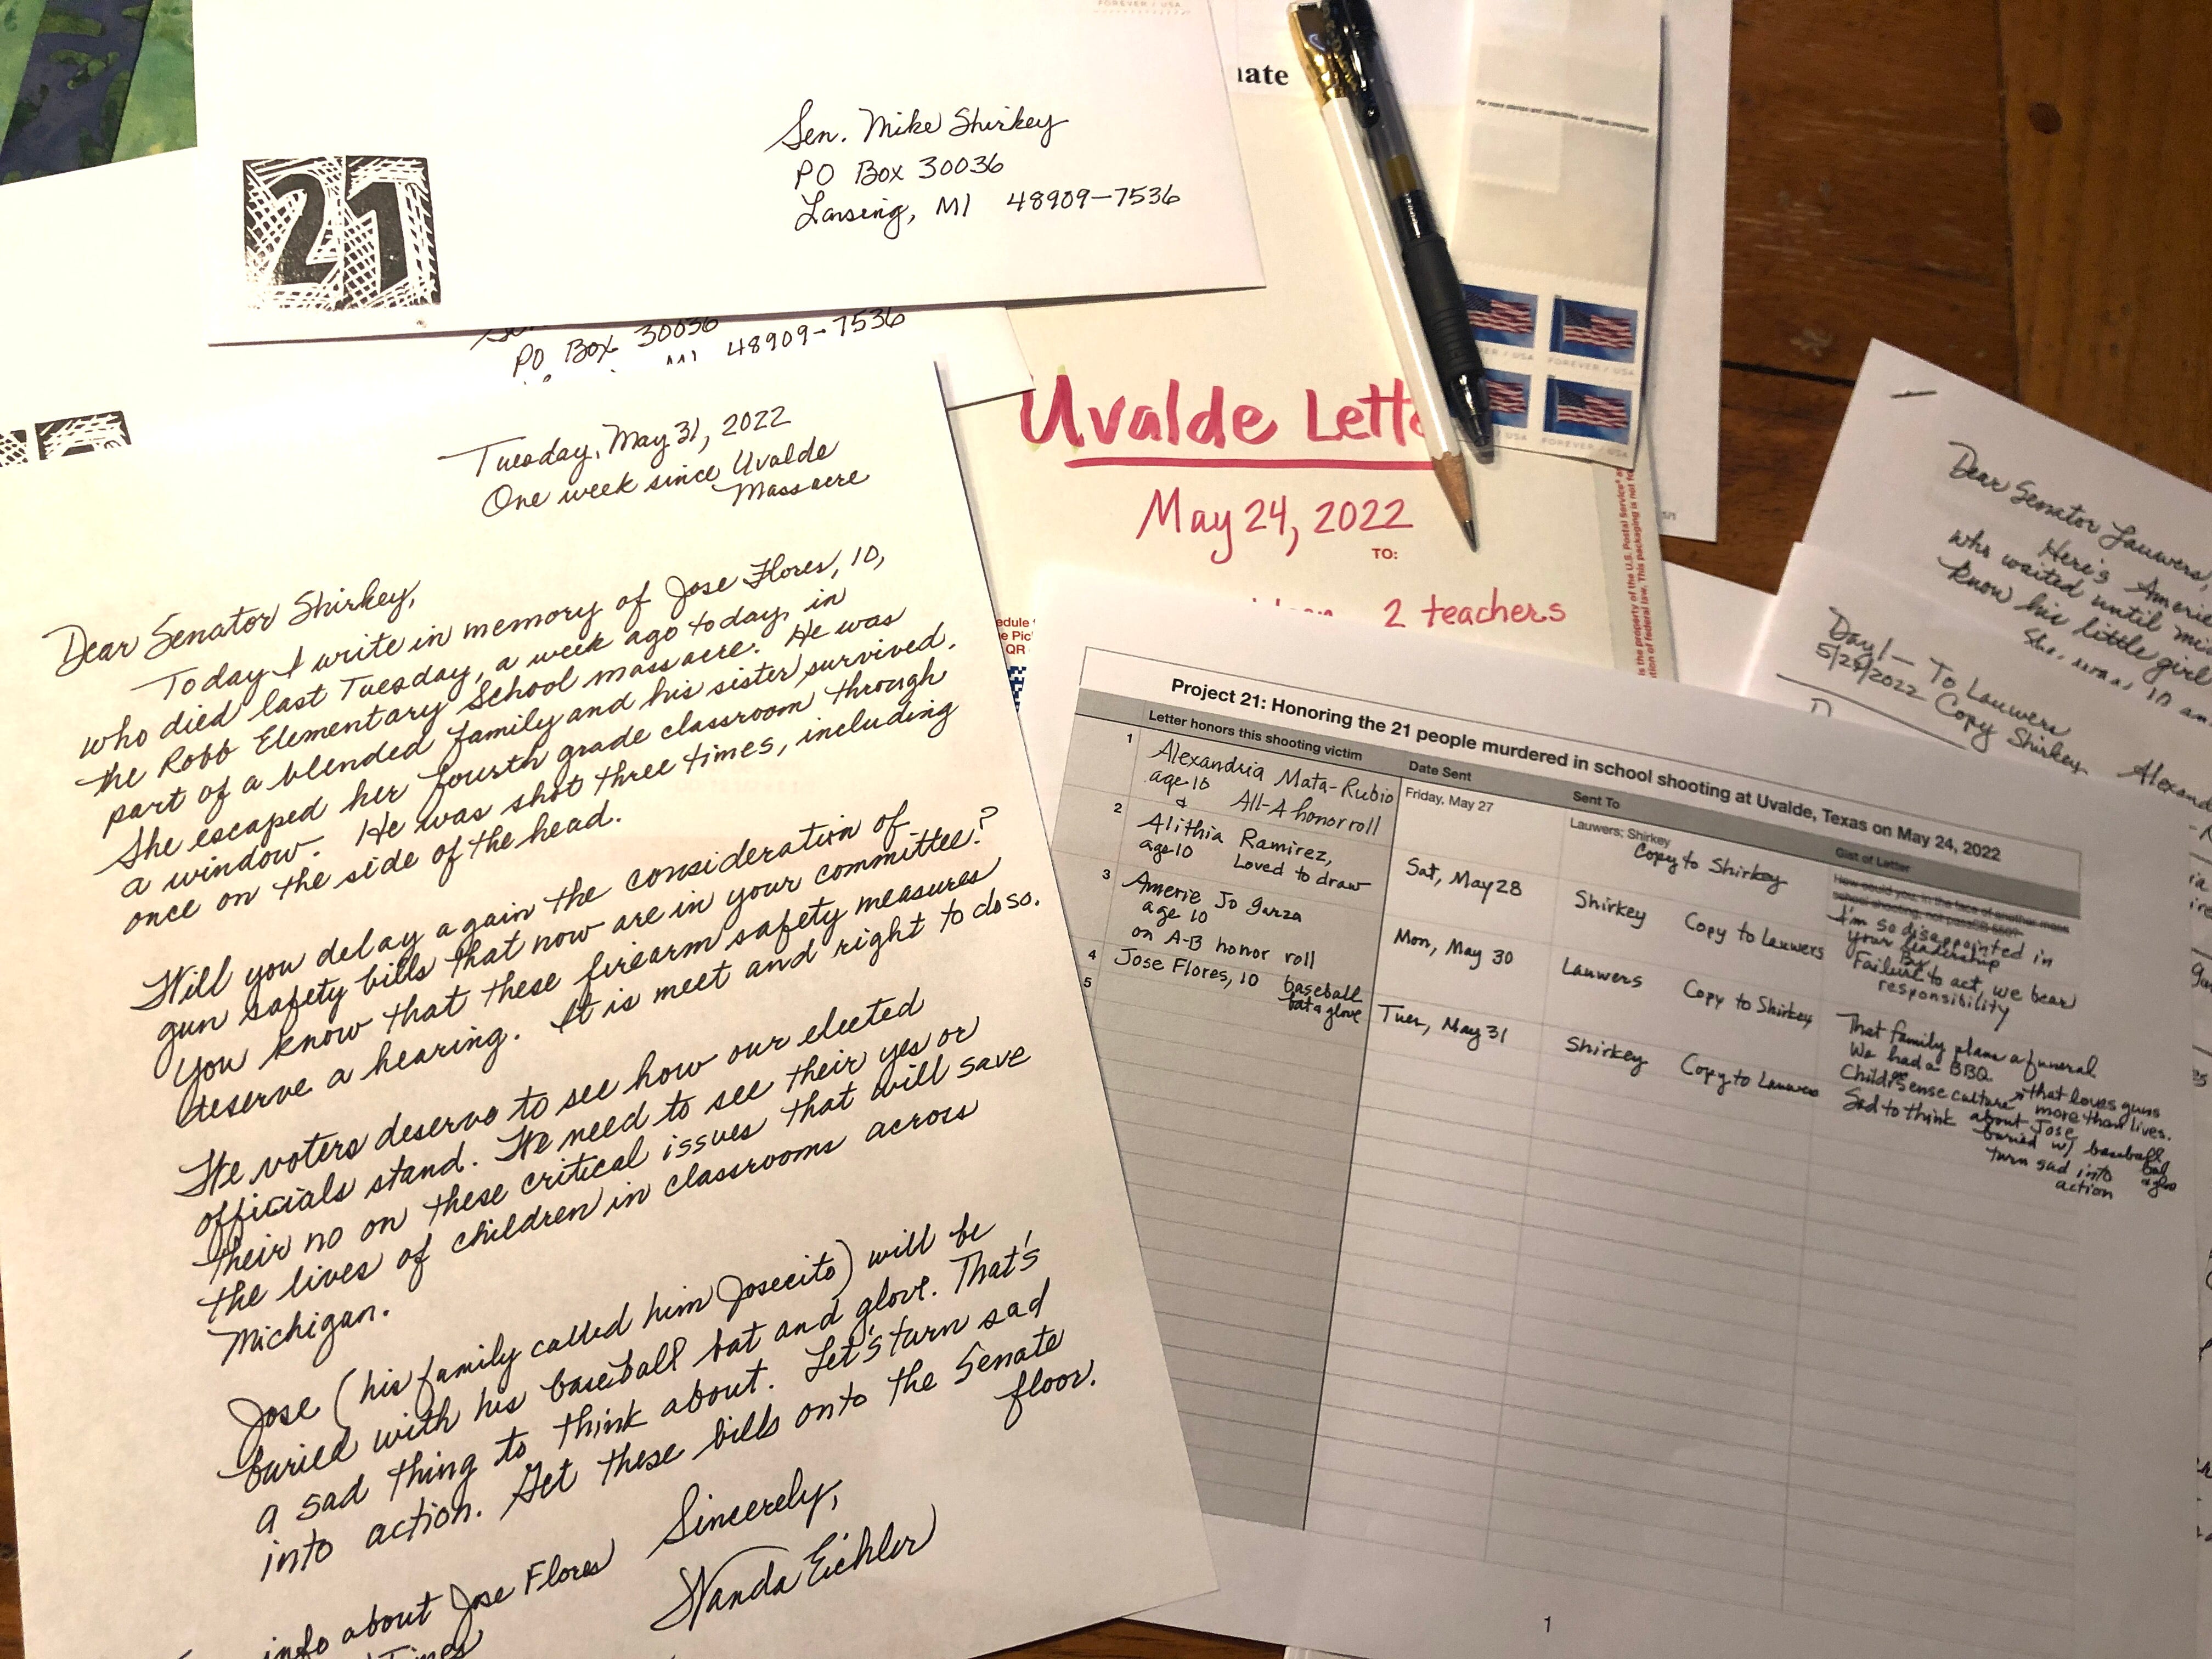 FOREVER / USA
Sen. Mike Shirkey
PO Box 30036
Lansing, MI 48909-7536
21
PO Box 30036
48909-7536
Tuesday, May 31, 2022
One week since Uvalde
Massacre
Dear Senator Shirkey,
Today I write in memory of Jose Flores, 10,
who died last Tuesday, a week ago today, in
the Robb Elementary School massacre. He was
part of a blended family and his sister survived.
She escaped her fourth grade classroom through
a window. He was shot three times, including
once on the side of the head.
Will you delay again the consideration of
gun safety bills that now are in your committee?
You know that these firearm safety measures
deserve a hearing. It is meet and right to do so.
We voters deserve to see how our elected
officials stand. We need to see their yes or
their no on these critical issues that will save
the lives of children in classrooms across
Michigan.
Jose (his family called him Josecito) will be
buried with his baseball bat and glove. That's
a sad thing to think about. Let's turn sad
into action. Get these bills onto the Senate
floor.
Sincerely,
Wanda Eichler
info about Jose Flores
Times
nate
For more stamps and collectibles, visit usps.com/stamps
FOREVER / USA
FOREVER / USA
Uvalde Lette
May 24, 2022
TO:
2 teachers
edule
e Pic
QR
is the property of the U.S. Postal Service®
tion of federal law. This packaging is not fo
Project 21: Honoring the 21 people murdered in school shooting at Uvalde, Texas on May 24, 2022
Letter honors this shooting victim Date Sent Sent To Gist of Letter
1 Alexandria Mata-Rubio Friday, May 27 Lauwers; Shirkey How could you, in the face of another mass
age 10 All-A honor roll Copy to Shirkey school shooting, not pass
&
2 Alithia Ramirez, Sat, May 28 Shirkey Copy to Lauwers I'm so disappointed in
age 10 Loved to draw your leadership
Failure to act, we bear
responsibility
3 Amerie Jo Garza Mon, May 30 Lauwers Copy to Shirkey That family plans a funeral
age 10 We had a BBQ
on A-B honor roll Child sense culture that loves guns
more than lives.
4 Jose Flores, 10 baseball Tues, May 31 Shirkey Copy to Lauwers Sad to think about Jose
bat & glove buried w/ baseball
bat & glove
turn sad into
action
5
1
Dear Senator Lauwers,
Here's Amerie
who waited until mi
know his little girl
She was 10 an
Day 1 - To Lauwers
5/27/2022 Copy Shirkey
Alexand